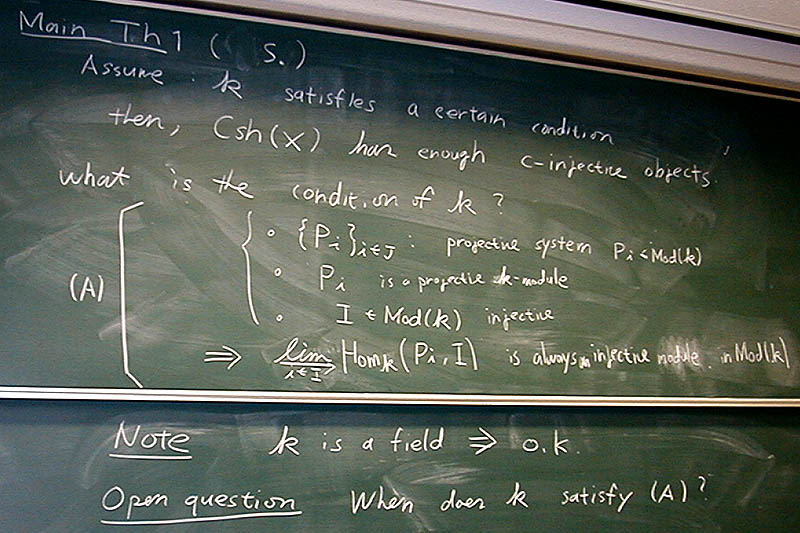 Main Th 1 ( S.)
Assume : k satisfies a certain condition
then, Csh(X) has enough c-injective objects.
What is the condition of k ?
(A)
• {P_i}_{i∈J} : projective system P_i ∈ Mod(k)
• P_i is a projective k-module
• I ∈ Mod(k) injective
⇒ \varinjlim_{i∈I} Hom_k(P_i, I) is always an injective module in Mod(k)
Note k is a field ⇒ o.k.
Open question When does k satisfy (A)?